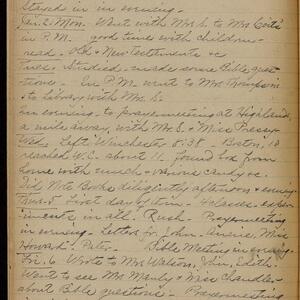 Stayed in in evening.
Jan. 2. Mon. Went with Mrs S. to Mrs
in P.M. good time with children
read. Old + New Testaments +c
Tues. Studied - made some Bible ques-
tions. In P.M. went to Mrs Thompson
to Library with Mrs S.
In evening to prayermeeting at Highlands,
a mile away, with Mrs S. + Miss
Wed. Left Winchester 8:38 - Boston, 10
reached W.C. about 11. found box from
home with much + various candy +c.
Did Note Books diligently afternoon + evening
Thurs. 5 First day of term. 4 classes. exper-
iments in all. Rush. Prayermeeting
in evening. Letters for John, Annie, Miss
Howard, Peter. Bible Meeting in evening
Fri. 6. Wrote to Mrs Watson, John, Edith.
Went to see Mr Manly + Miss Chandler
about Bible questions. Prayermeeting